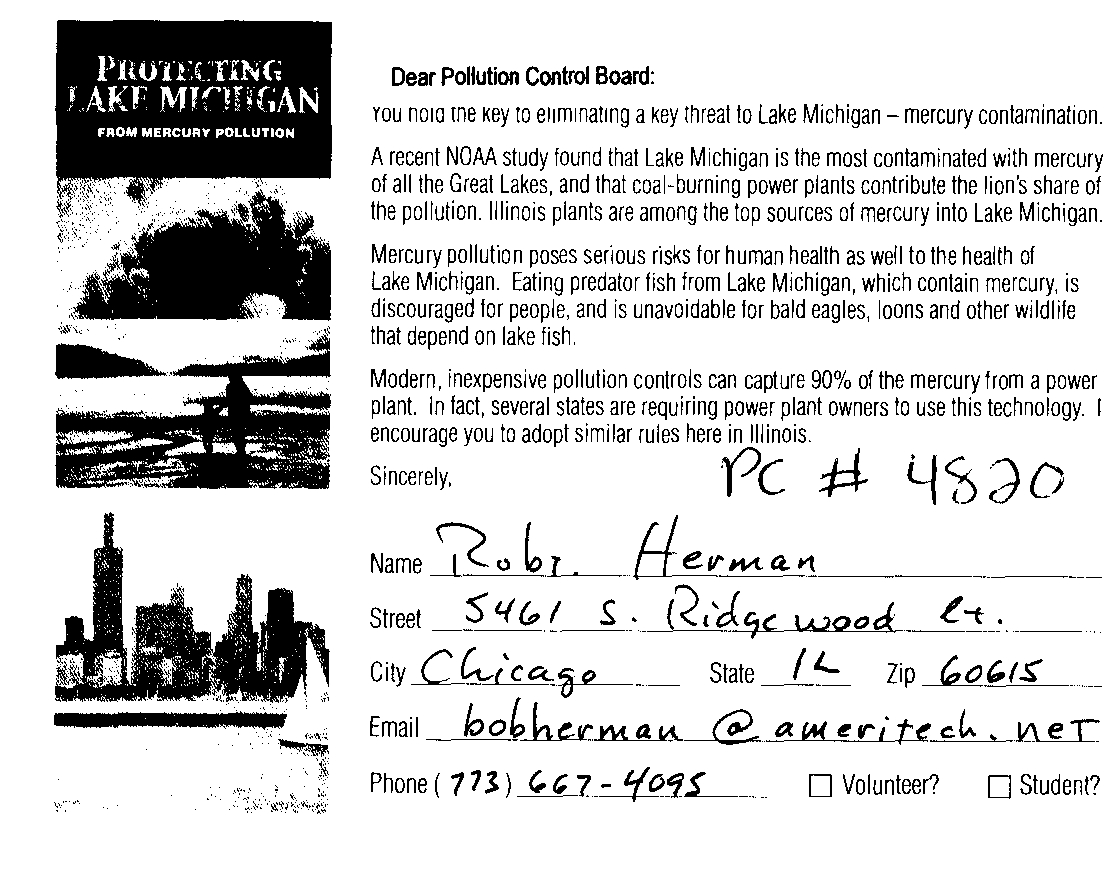 PROTECTING
LAKE MICHIGAN
FROM MERCURY POLLUTION
Dear Pollution Control Board:
You hold the key to eliminating a key threat to Lake Michigan – mercury contamination.
A recent NOAA study found that Lake Michigan is the most contaminated with mercury
of all the Great Lakes, and that coal-burning power plants contribute the lion's share of
the pollution. Illinois plants are among the top sources of mercury into Lake Michigan.
Mercury pollution poses serious risks for human health as well to the health of
Lake Michigan. Eating predator fish from Lake Michigan, which contain mercury, is
discouraged for people, and is unavoidable for bald eagles, loons and other wildlife
that depend on lake fish.
Modern, inexpensive pollution controls can capture 90% of the mercury from a power
plant. In fact, several states are requiring power plant owners to use this technology. I
encourage you to adopt similar rules here in Illinois.
Sincerely,
PC # 4820
Name Robt. Herman
Street 5461 S. Ridgewood Ct.
City Chicago State IL Zip 60615
Email bobherman @ ameritech.net
Phone (773) 667-4095 Volunteer? Student?